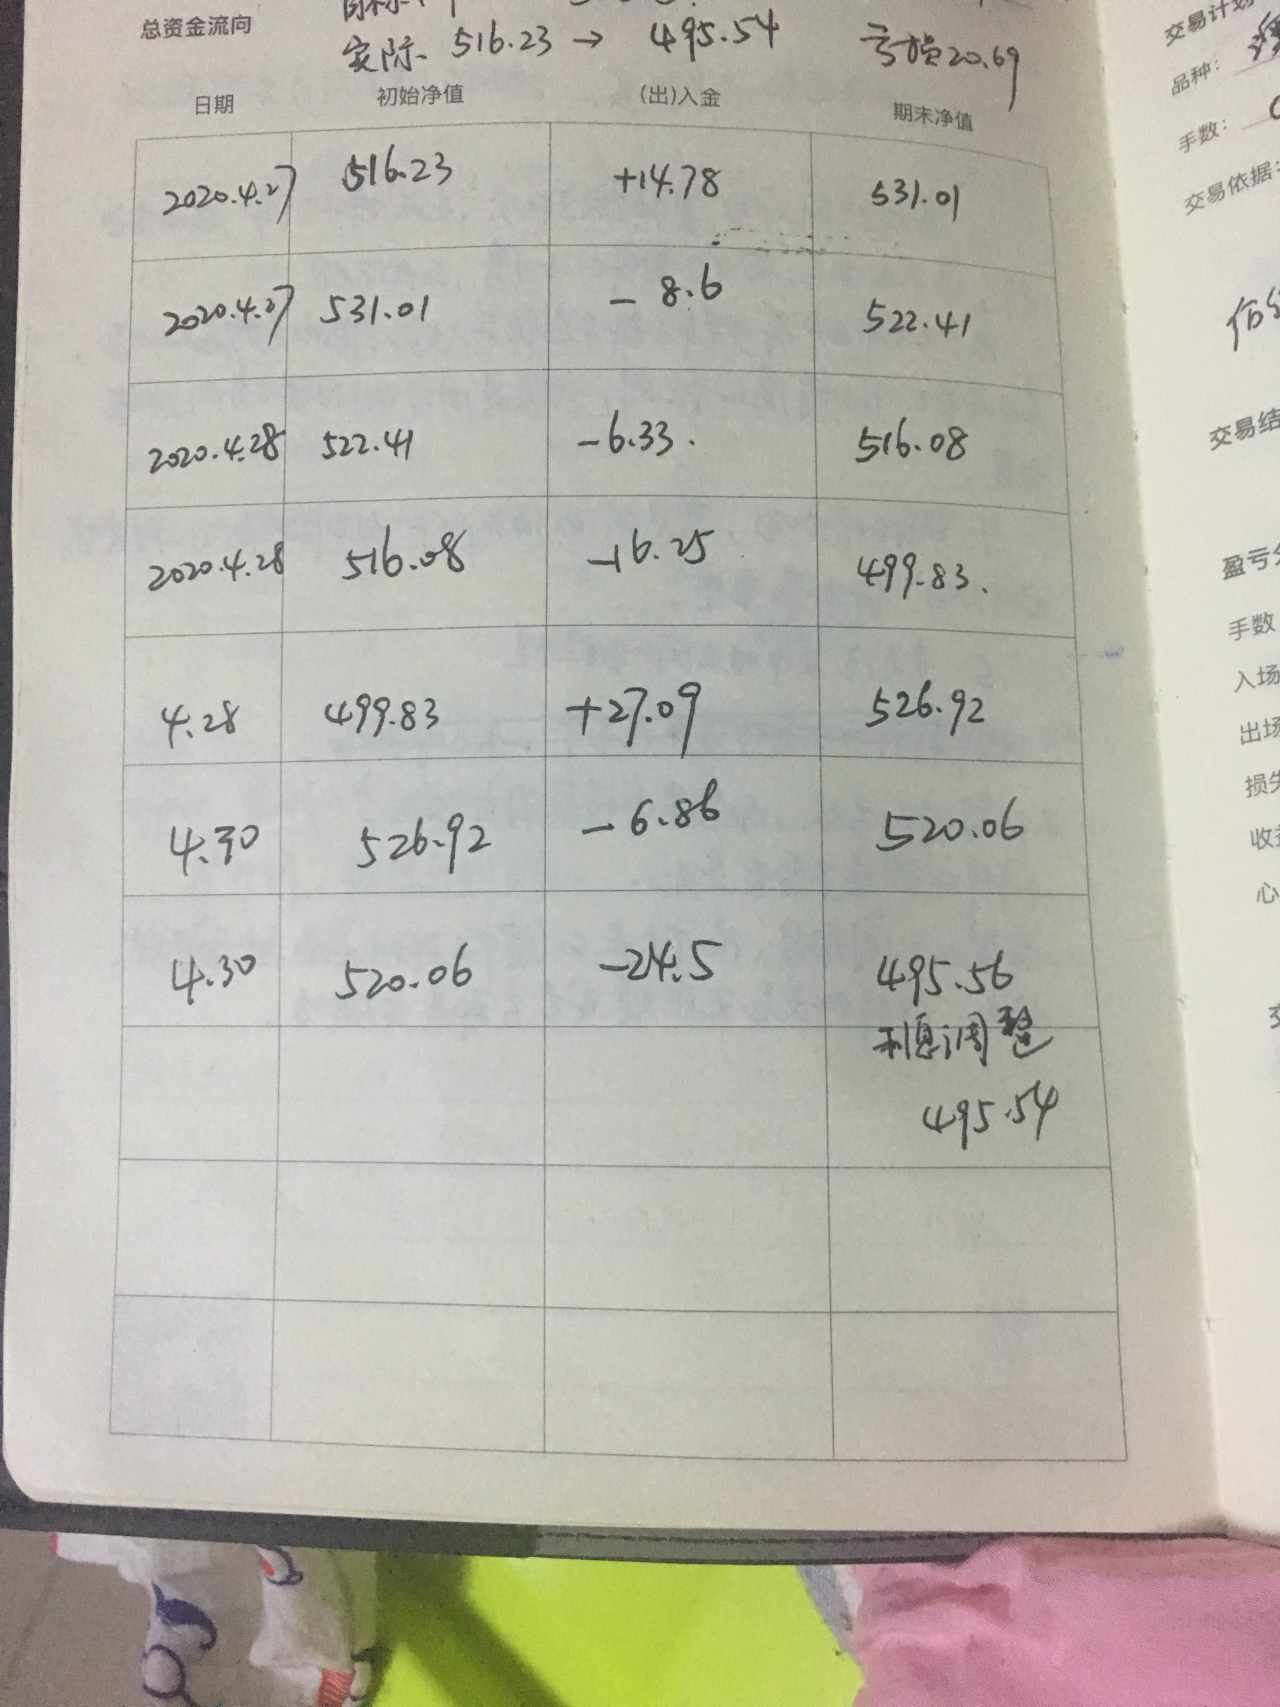 总资金流向
实际 516.23 → 495.54 亏损20.69
日期 初始净值 (出)入金 期末净值
2020.4.27 516.23 +14.78 531.01
2020.4.27 531.01 - 8.6 522.41
2020.4.28 522.41 -6.33. 516.08
2020.4.28 516.08 -16.25 499.83.
4.28 499.83 +27.09 526.92
4.30 526.92 -6.86 520.06
4.30 520.06 -24.5 495.56
利息调整
495.54
交易计划
品种:
手数:
交易依据:
交易结
盈亏分
手数
入场
出场
损失
收益
心